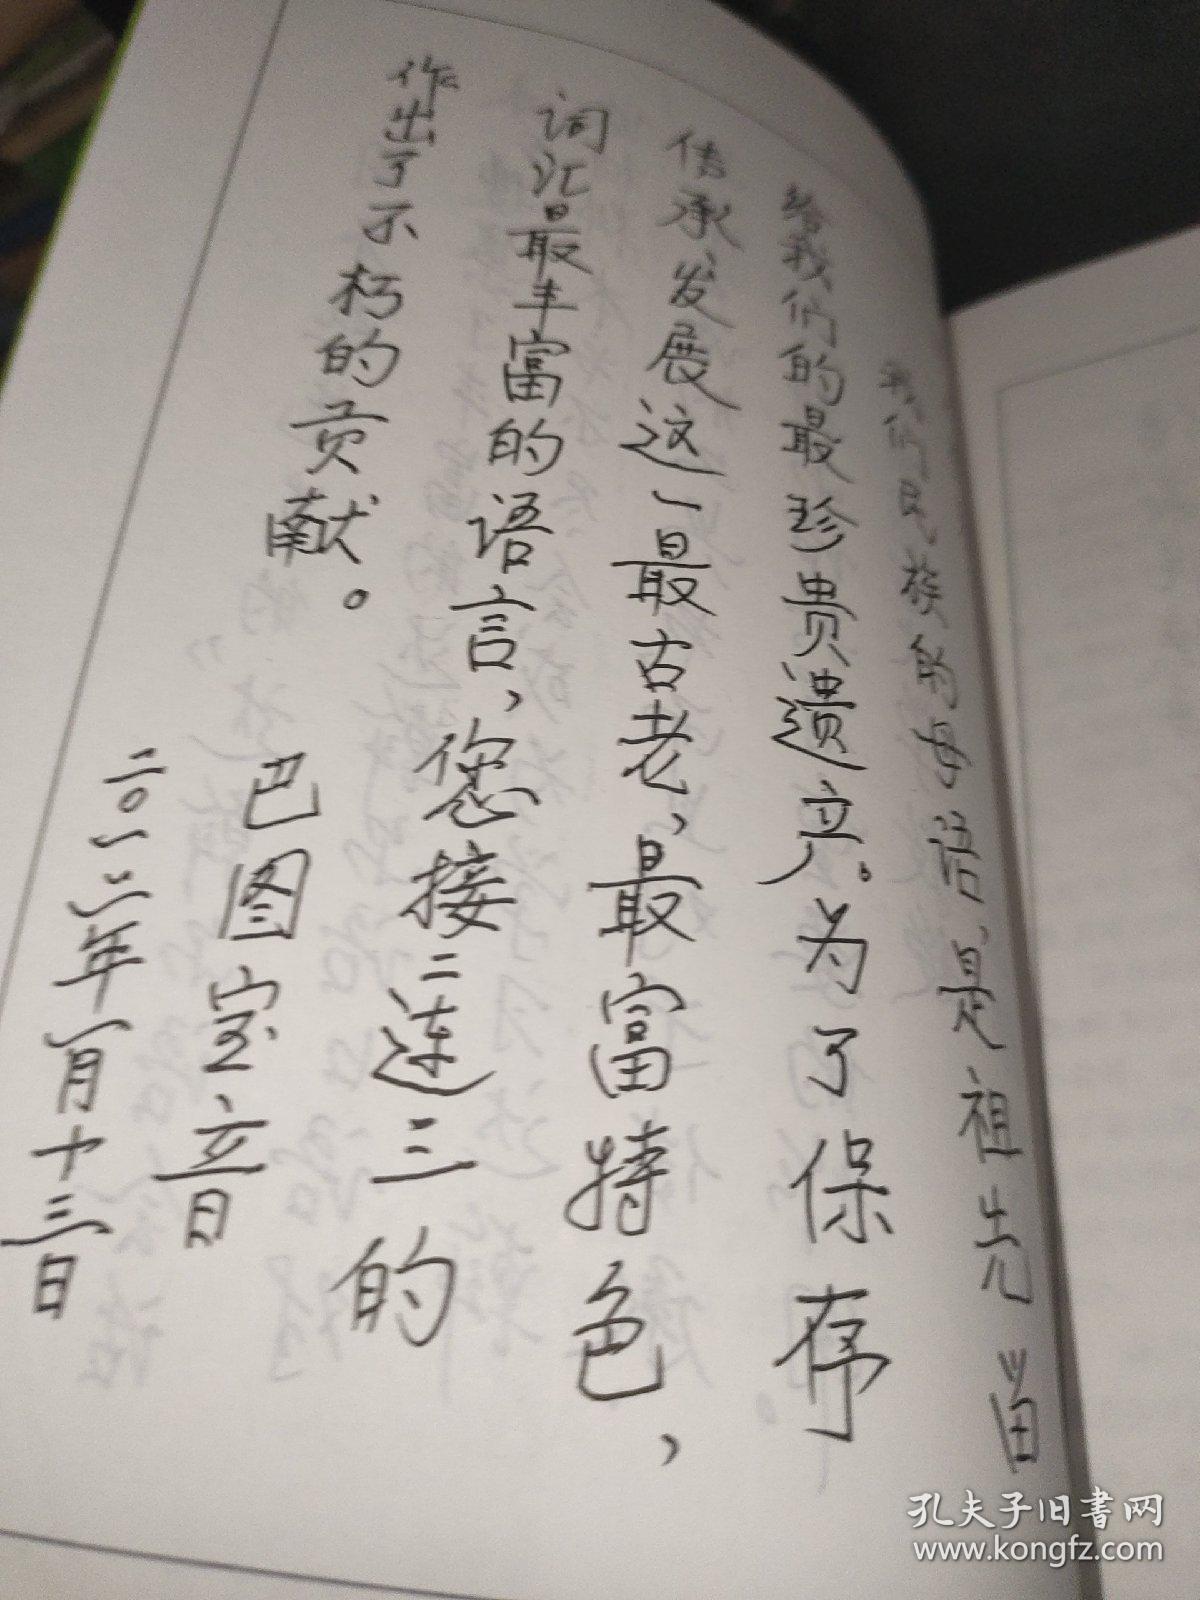 我们民族的母语,是祖先留
给我们的最珍贵遗产。为了保存
传承发展这一最古老,最富特色,
词汇最丰富的语言,您接二连三的
作出了不朽的贡献。
巴图宝音
二〇一二年一月十三日
孔夫子旧书网
www.kongfz.com